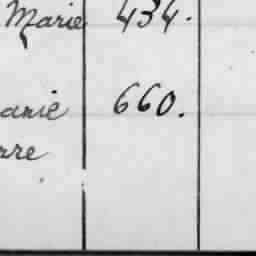 Marie 434.
anie 660.
rre